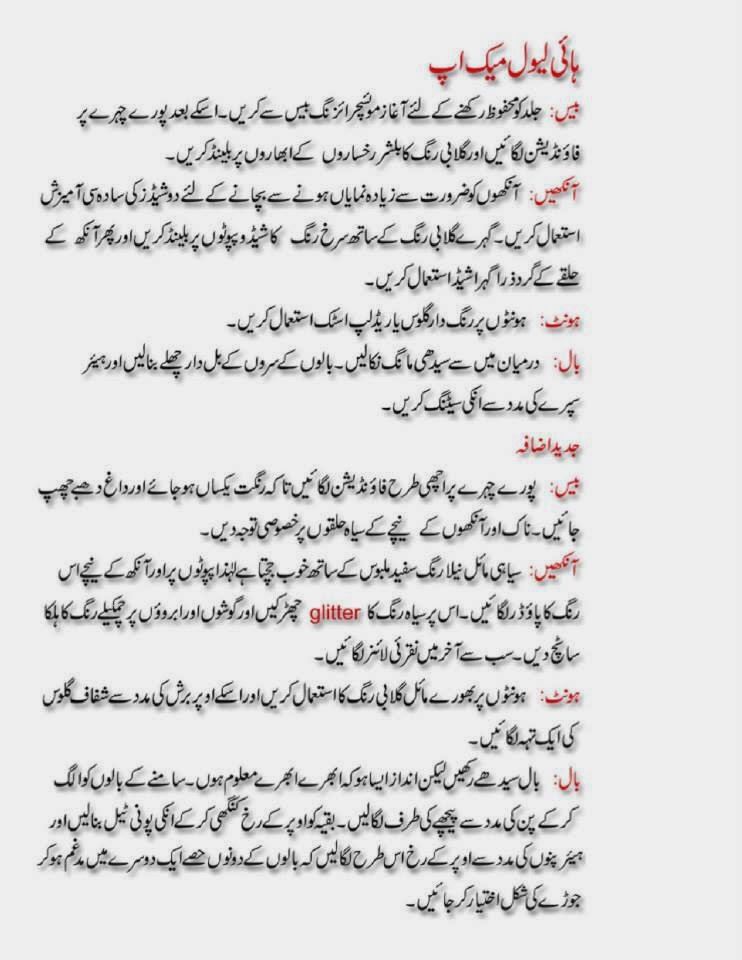 ہائی لیول میک اپ
بیس: جلد کو محفوظ رکھنے کے لئے آغاز موئسچرائزنگ بیس سے کریں۔ اسکے بعد پورے چہرے پر
فاؤنڈیشن لگائیں اور گلابی رنگ کا بلشر رخساروں کے ابھاروں پر بلینڈ کریں۔
آنکھیں: آنکھوں کو ضرورت سے زیادہ نمایاں ہونے سے بچانے کے لئے دو شیڈز کی سادہ سی آمیزش
استعمال کریں۔ گہرے گلابی رنگ کے ساتھ سرخ رنگ کا شیڈو پپوٹوں پر بلینڈ کریں اور پھر آنکھ کے
حلقے کے گرد ذرا گہرا شیڈ استعمال کریں۔
ہونٹ: ہونٹوں پر رنگ دار گلوس یا ریڈ لپ اسٹک استعمال کریں۔
بال: درمیان میں سے سیدھی مانگ نکالیں۔ بالوں کے سروں کے بل دار چھلے بنالیں اور ہیئر
سپرے کی مدد سے انکی سیٹنگ کریں۔
جدید اضافہ
بیس: پورے چہرے پر اچھی طرح فاؤنڈیشن لگائیں تاکہ رنگت یکساں ہو جائے اور داغ دھبے چھپ
جائیں۔ ناک اور آنکھوں کے نیچے کے سیاہ حلقوں پر خصوصی توجہ دیں۔
آنکھیں: سیاہی مائل نیلا رنگ سفید ملبوس کے ساتھ خوب جچتا ہے لہٰذا پپوٹوں پر اور آنکھ کے نیچے اس
رنگ کا پاؤڈر لگائیں۔ اس پر سیاہ رنگ کا glitter چھڑکیں اور گوشوں اور ابروؤں پر چمکیلے رنگ کا ہلکا
سا ٹچ دیں۔ سب سے آخر میں نقرئی لائنر لگائیں۔
ہونٹ: ہونٹوں پر بھورے مائل گلابی رنگ کا استعمال کریں اور اسکے اوپر برش کی مدد سے شفاف گلوس
کی ایک تہہ لگائیں۔
بال: بال سیدھے رکھیں لیکن انداز ایسا ہو کہ ابھرے ابھرے معلوم ہوں۔ سامنے کے بالوں کو الگ
کر کے پن کی مدد سے پیچھے کی طرف لگالیں۔ بقیہ کو اوپر کے رخ کنگھی کر کے انکی پونی ٹیل بنالیں اور
ہیئر پنوں کی مدد سے اوپر کے رخ اس طرح لگالیں کہ بالوں کے دونوں حصے ایک دوسرے میں مدغم ہو کر
جوڑے کی شکل اختیار کر جائیں۔